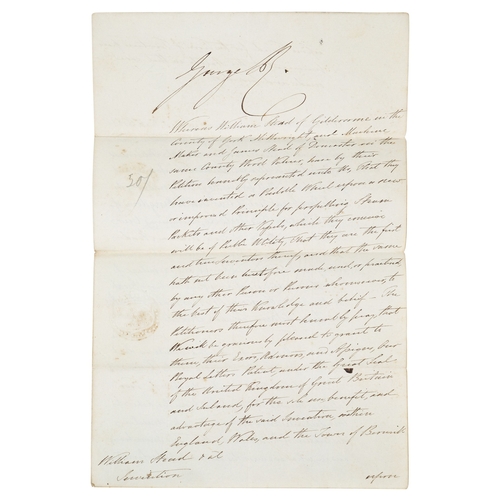 George R.
Whereas William Stead of Gildersome in the
County of York Millwright and Machine
Maker and James Stead of Doncaster in the
same County Wool Stapler, have by their
Petition humbly represented unto Us, that they
have invented a Paddle Wheel upon a new
or improved Principle for propelling Steam
Packets and other Vessels, which they conceive
will be of Public Utility, That they are the first
and true Inventors thereof, and that the same
hath not been heretofore made, used, or practised
by any other Person or Persons whomsoever, to
the best of their Knowledge and belief. The
Petitioners therefore most humbly pray, that
We will be graciously pleased to grant to
them, their Exors, Admors, and Assigns, Our
Royal Letters Patent, under the Great Seal
of the United Kingdom of Great Britain
and Ireland, for the sole use, benefit, and
advantage of the said Invention, within
England, Wales, and the Town of Berwick
30/
William Stead & al
Invention
upon